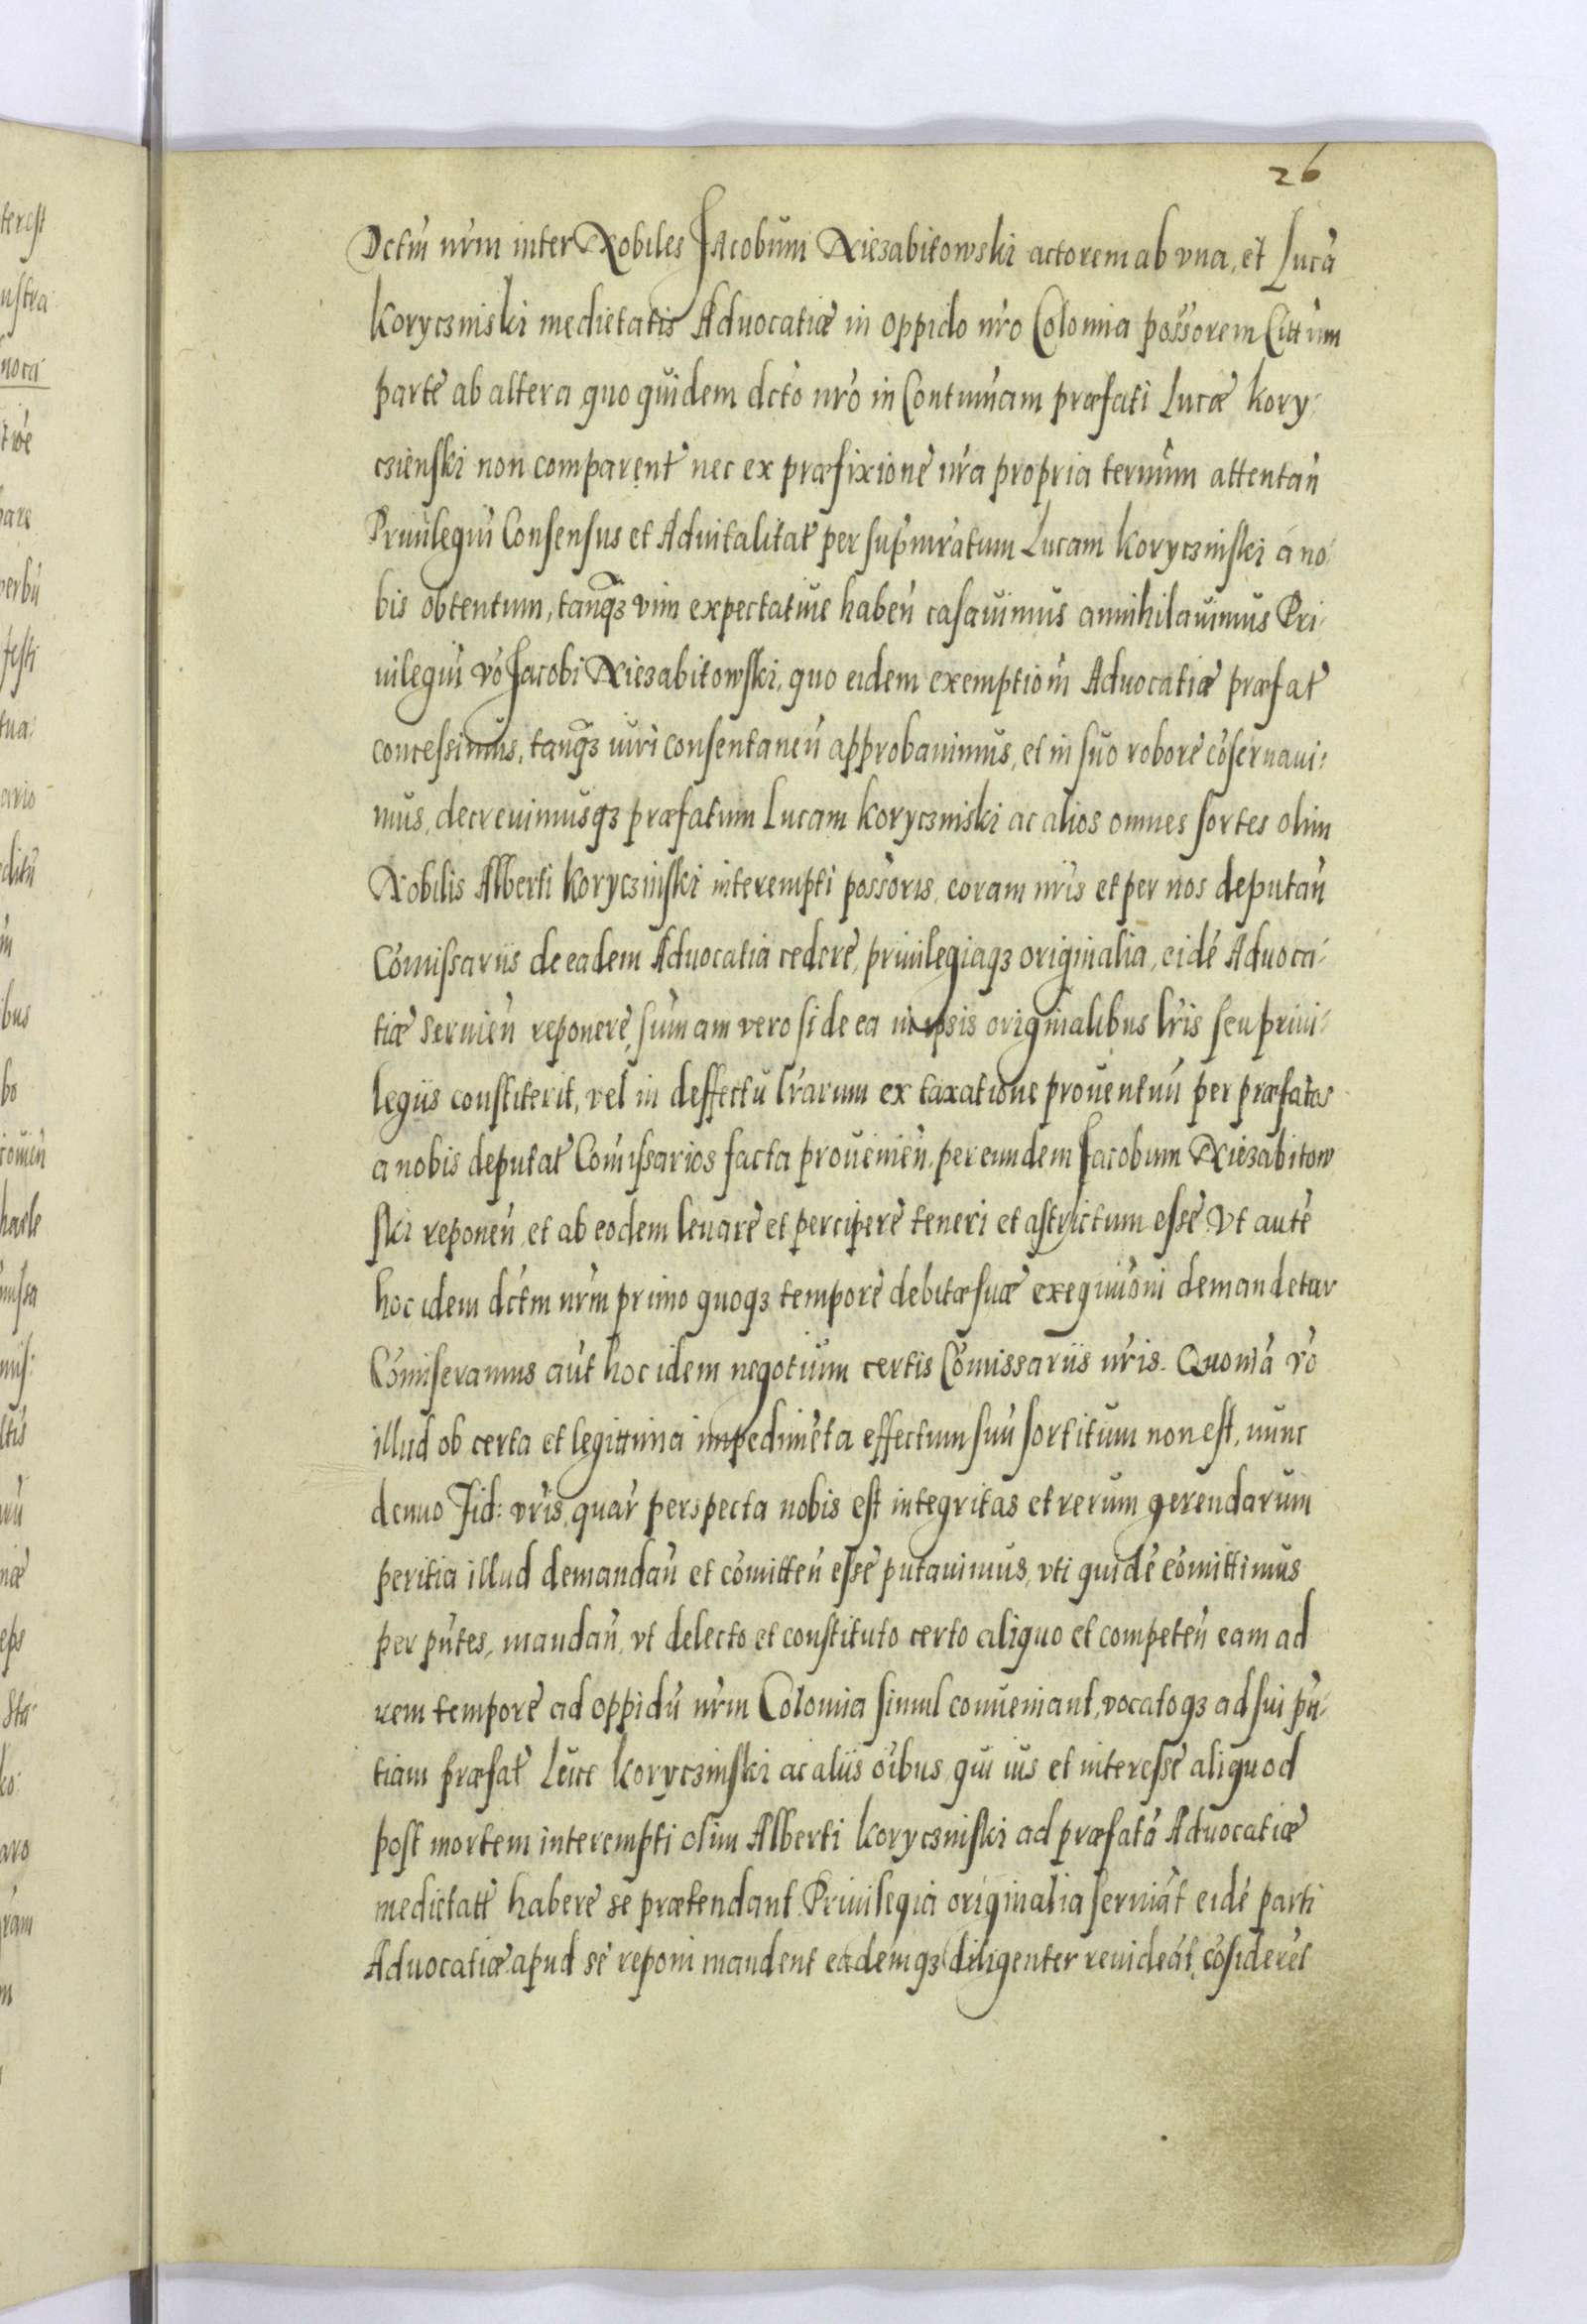 26
Dctm̃ nr̃m inter Nobiles Jacobum Niezabitowski actorem ab vna, et Lucã
Koryczniski medietatis Aduocatiæ in oppido nr̃o Colomia possorem Cittum
parte ab altera quo quidem dct̃o nr̃o in Contumam præfati Lucæ Kory:
czienski non comparent̃ nec ex præfixione nr̃a propria termm attentan̄
Priuilegiũ Consensus et Aduitalitat̃ per supmr̃atum Lucam Koryczniski á no
bis obtentum, tanq̃ȝ vim expectatiue haben̄ casauimus annihilauimus Pri
uilegiũ vo Jacobi Niezabitowski, quo eidem exemptiom̃ Aduocatiæ præfat̃
concessimus, tanq̃ȝ iuri consentaneũ approbauimus, et in suo robore cõseruaui:
mus, decreuimusqȝ præfatum Lucam Koryczniski ac alios omnes sortes olim
Nobilis Alberti Koryczinski interempti possoris, coram nr̃is et per nos deputan̄
Com̃issariis de eadem Aduocatia cedere, priuilegiaqȝ originalia, eidẽ Aduoca:
tiæ seruien̄ reponere, sum̃am vero si de ea in ipsis originalibus lr̃is seu priui:
legiis constiterit, vel in deffectu lr̃arum ex taxatione prouentuũ per præfatos
a nobis deputat̃ Com̃issarios facta prouenien̄, per eundem Jacobum Niezabitow
ski reponen̄ et ab eodem leuare et percipere teneri et astrictum esse Vt autẽ
hoc idem dct̃m nr̃m primo quoqȝ tempore debitæ suæ exequuõni demandetur
Com̃iseramus aũt hoc idem negotium certis Com̃issariis nr̃is. Quoniã vo
illud ob certa et legittima impedimẽta effectum suũ sortitum non est, nunc
denuo Fid: vr̃is, quar̃ perspecta nobis est integritas et rerum gerendarum
peritia illud demandan̄ et com̃itten̄ esse putauimus, vti quidẽ com̃ittimus
per pñtes, mandan̄, vt delecto et constituto certo aliquo et competen̄ eam ad
rem tempore ad oppidũ nr̃m Colomia simul conueniant, vocatoqȝ ad sui pñ:
tiam præfat̃ Luce Koryczinski ac aliis oĩbus, qui ius et interesse aliquod
post mortem interempti olim Alberti Koryczniski ad præfatã Aduocatiæ
medietatẽ habere se prætendant. Priuilegia originalia seruiãt eidẽ parti
Aduocatiæ apud se reponi mandent eademqȝ diligenter reuideãt, cõsiderẽt